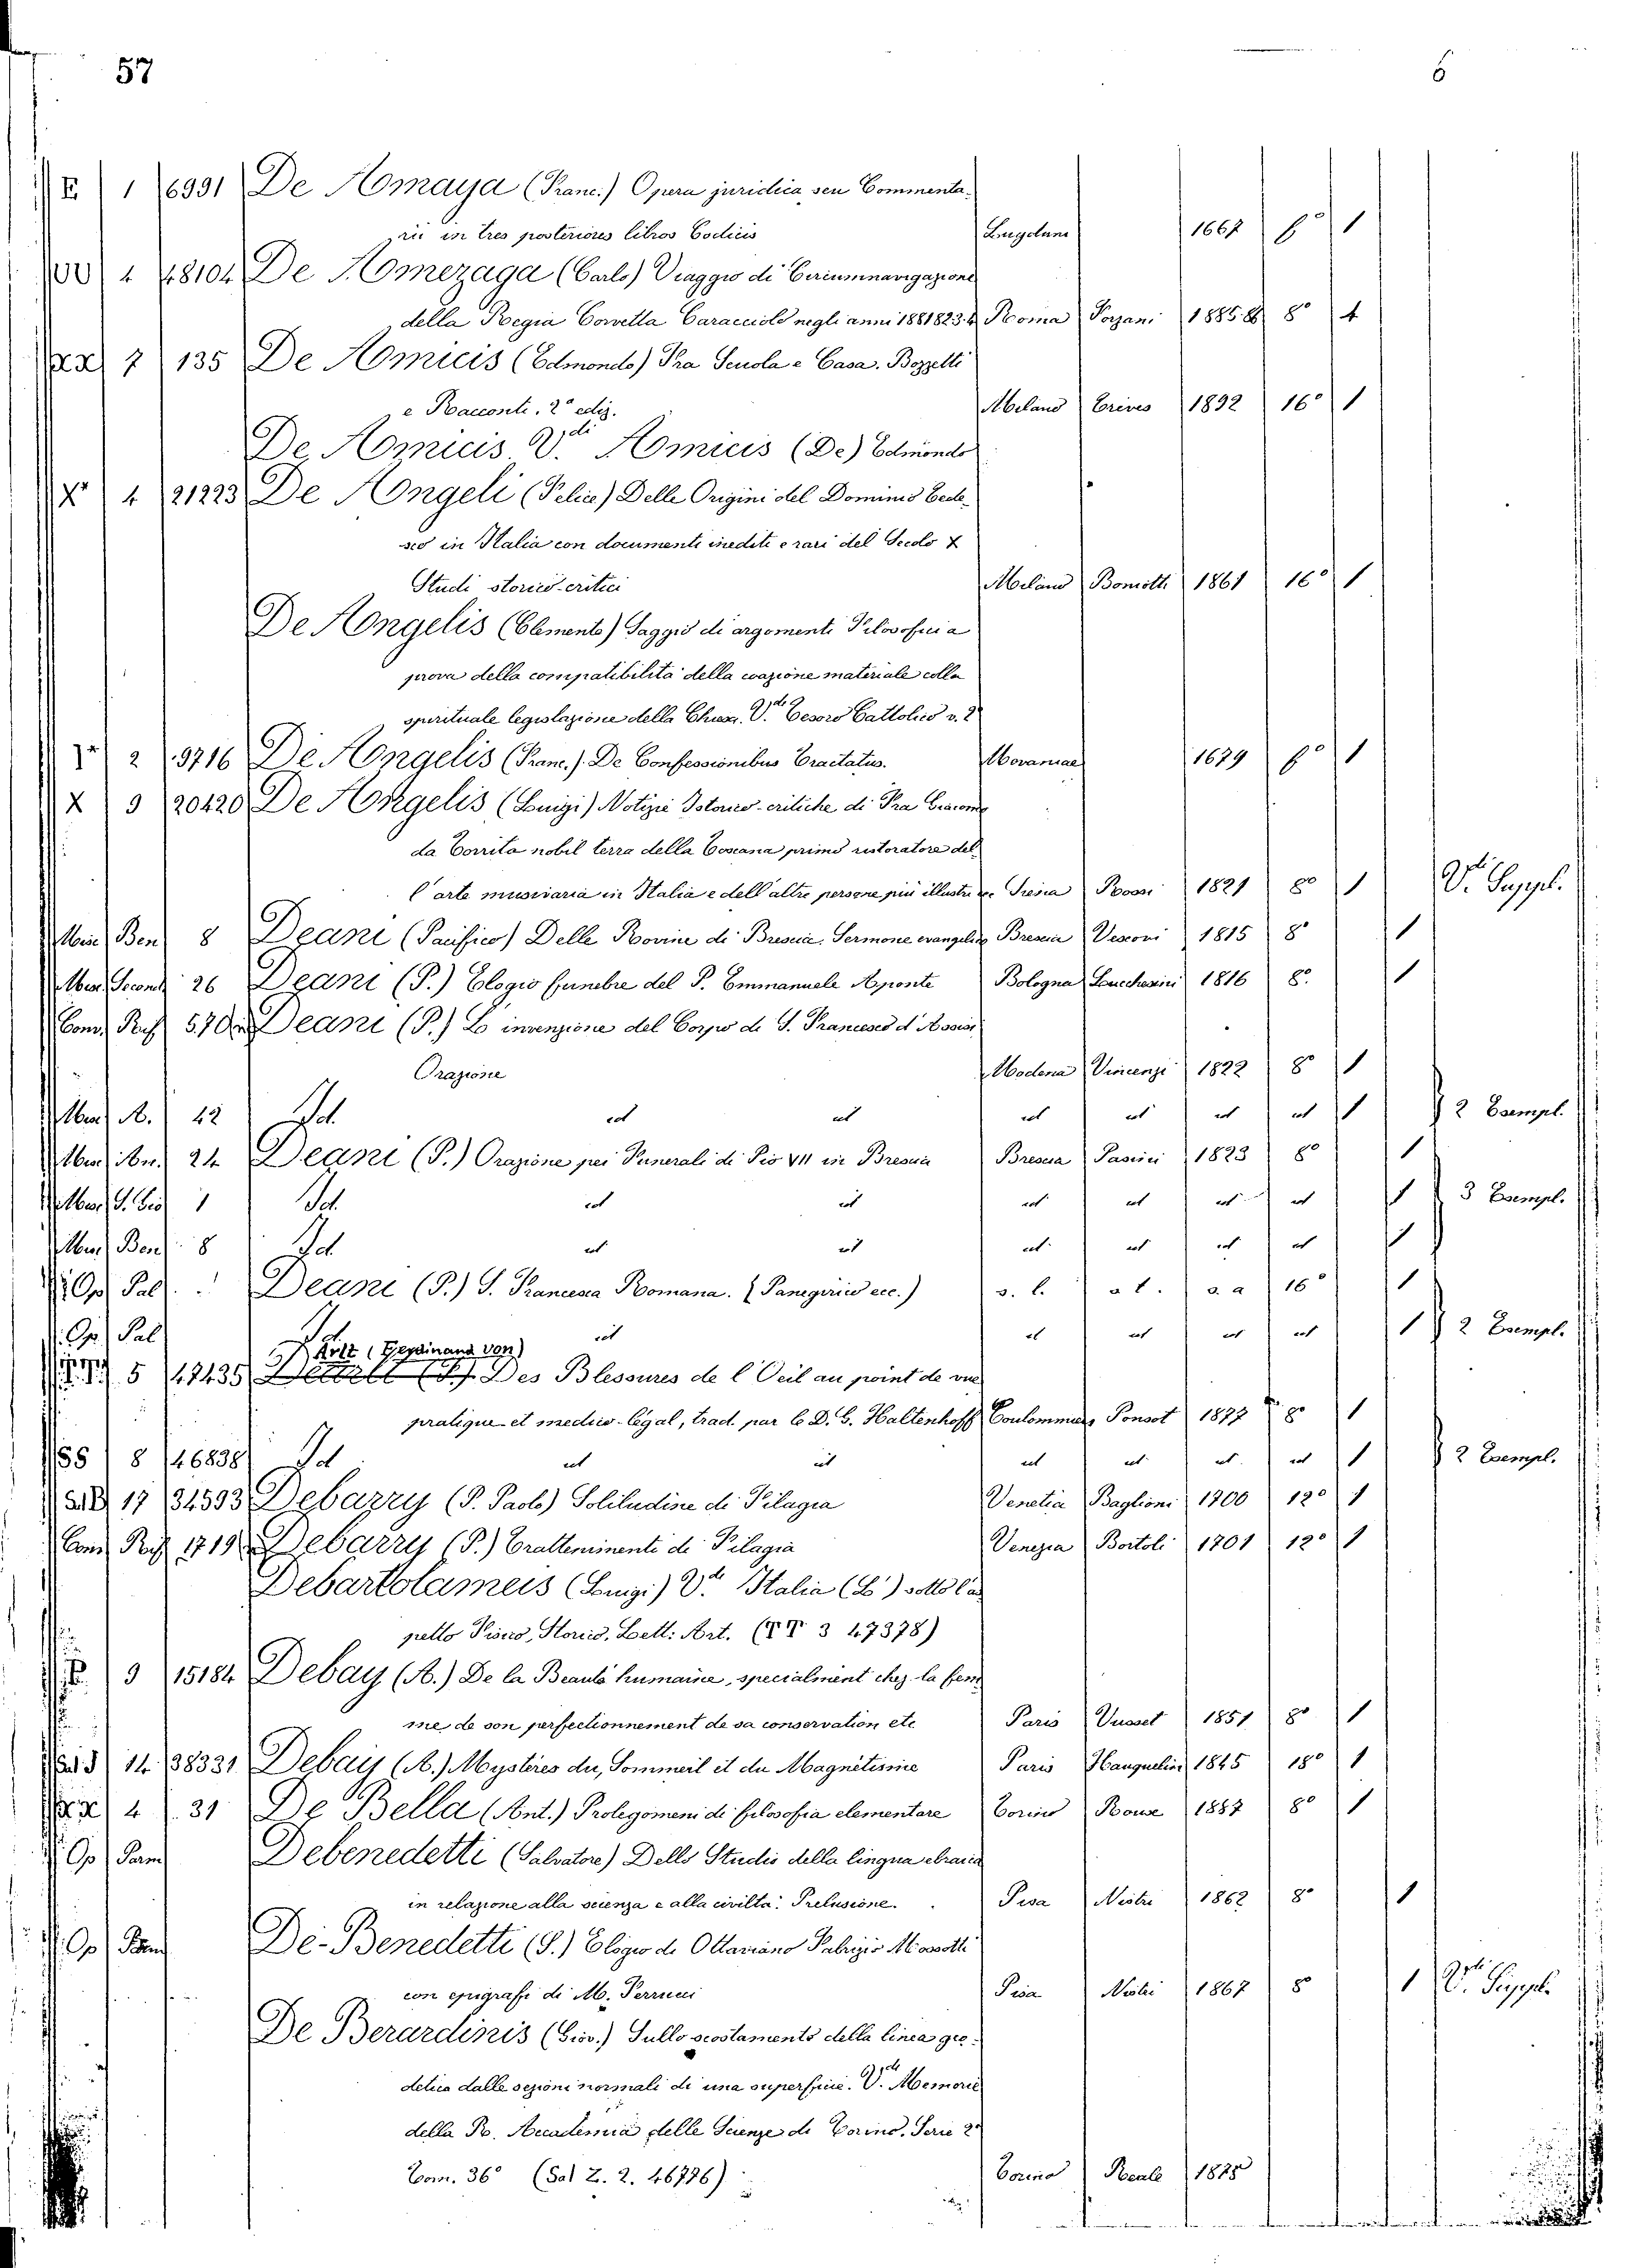 57 6
E 1 6991 De Amaya (Franc.) Opera juridica, seu Commenta-
rii in tres posteriores libros Codicis Lugduni 1667 fº 1
UU 4 48104 De Amezaga (Carlo) Viaggio di Circumnavigazione
della Regia Corvetta Caracciolo negli anni 1881823.4 Roma Forzani 1885.8 8º 4
7 135 De Amicis (Edmondo) Fra Scuola e Casa. Bozzetti
e Racconti. 2ª ediz. Milano Treves 1892 16º 1
De Amicis V.di Amicis (De) Edmondo
X 4 21223 De Angeli (Felice) Delle Origini del Dominio Tede-
sco in Italia con documenti inediti e rari del Secolo X
Studi storico-critici Milano Boniotti 1861 16º 1
De Angelis (Clemente) Saggio di argomenti Filosofici a
prova della compatibilità della coazione materiale colla
spirituale legislazione della Chiesa. V.di Tesoro Cattolico v. 2
2 9716 De Angelis (Franc.) De Confessionibus Tractatus. 1679 fº 1
X 9 20420 De Angelis (Luigi) Notizie Istorico-critiche di Fra Giacomo
da Torrita nobil terra della Toscana primo ristoratore del-
l'arte musivaria in Italia e dell'altre persone più illustri ec. Siena Rossi 1821 8º 1 V.di Suppl.
Misc Ben 8 Deani (Pacifico) Delle Rovine di Brescia. Sermone evangelico Brescia Vescovi 1815 8º 1
Misc Second 26 Deani (P.) Elogio funebre del P. Emmanuele Aponte Bologna Lucchesini 1816 8º 1
Com. Ruf 570 Deani (P.) L'invenzione del Corpo di S. Francesco d'Assisi
Orazione Modena Vincenzi 1822 8º 1
Misc A. 42 Id. id id id id id id 1 2 Esempl.
Misc An. 24 Deani (P.) Orazione pei Funerali di Pio VII in Brescia Brescia Pasini 1823 8º 1
Misc S. Gio 1 Id. id id id id id id 1 3 Esempl.
Misc Ben 8 Id. id id id id id id 1
Op Pal Deani (P.) S. Francesca Romana. (Panegirico ecc.) s. l. s. t. s. a 16º 1
Op. Pal Id. id id id id id 1 2 Esempl.
Arlt (Ferdinand von)
5 47435 Des Blessures de l'Oeil au point de vue
pratique et medico-légal, trad. par C. D. G. Haltenhoff Coulommiers Ponsot 1877 8º 1
SS 8 46838 Id id id id id id id 1 2 Esempl.
17 34593 Debarry (P. Paolo) Solitudine di Filagia Venetia Baglioni 1700 12º 1
Com Ruf 1719 Debarry (P.) Trattenimenti di Filagia Venezia Bortoli 1701 12º 1
Debartolameis (Luigi) V.di Italia (L') sotto l'as-
petto Fisico, Storico, Lett: Art. (TT 3 47378)
9 15184 Debay (A.) De la Beauté humaine, specialment chez la fem-
me, de son perfectionnement de sa conservation etc Paris Vusset 1851 8º 1
14 38331 Debay (A.) Mystères du, Sommeil et du Magnétisme Paris Hauquelin 1845 18º 1
4 31 De Bella (Ant.) Prolegomeni di filosofia elementare Torino Roux 1887 8º 1
Op Parm Debenedetti (Salvatore) Dello Studio della lingua ebraica
in relazione alla scienza e alla civiltà. Prelusione. Pisa Nistri 1862 8º 1
Op Parm De-Benedetti (S.) Elogio di Ottaviano Fabrizio Mossotti
con epigrafi di M. Ferrucci Pisa Nistri 1867 8º 1 V.di Suppl.
De Berardinis (Giov.) Sullo scostamento della linea geo-
detica dalle sezioni normali di una superficie. V.di Memorie
della R. Accademia delle Scienze di Torino. Serie 2ª
Tom. 36º (Sal Z. 2. 46786) Torino Reale 1885